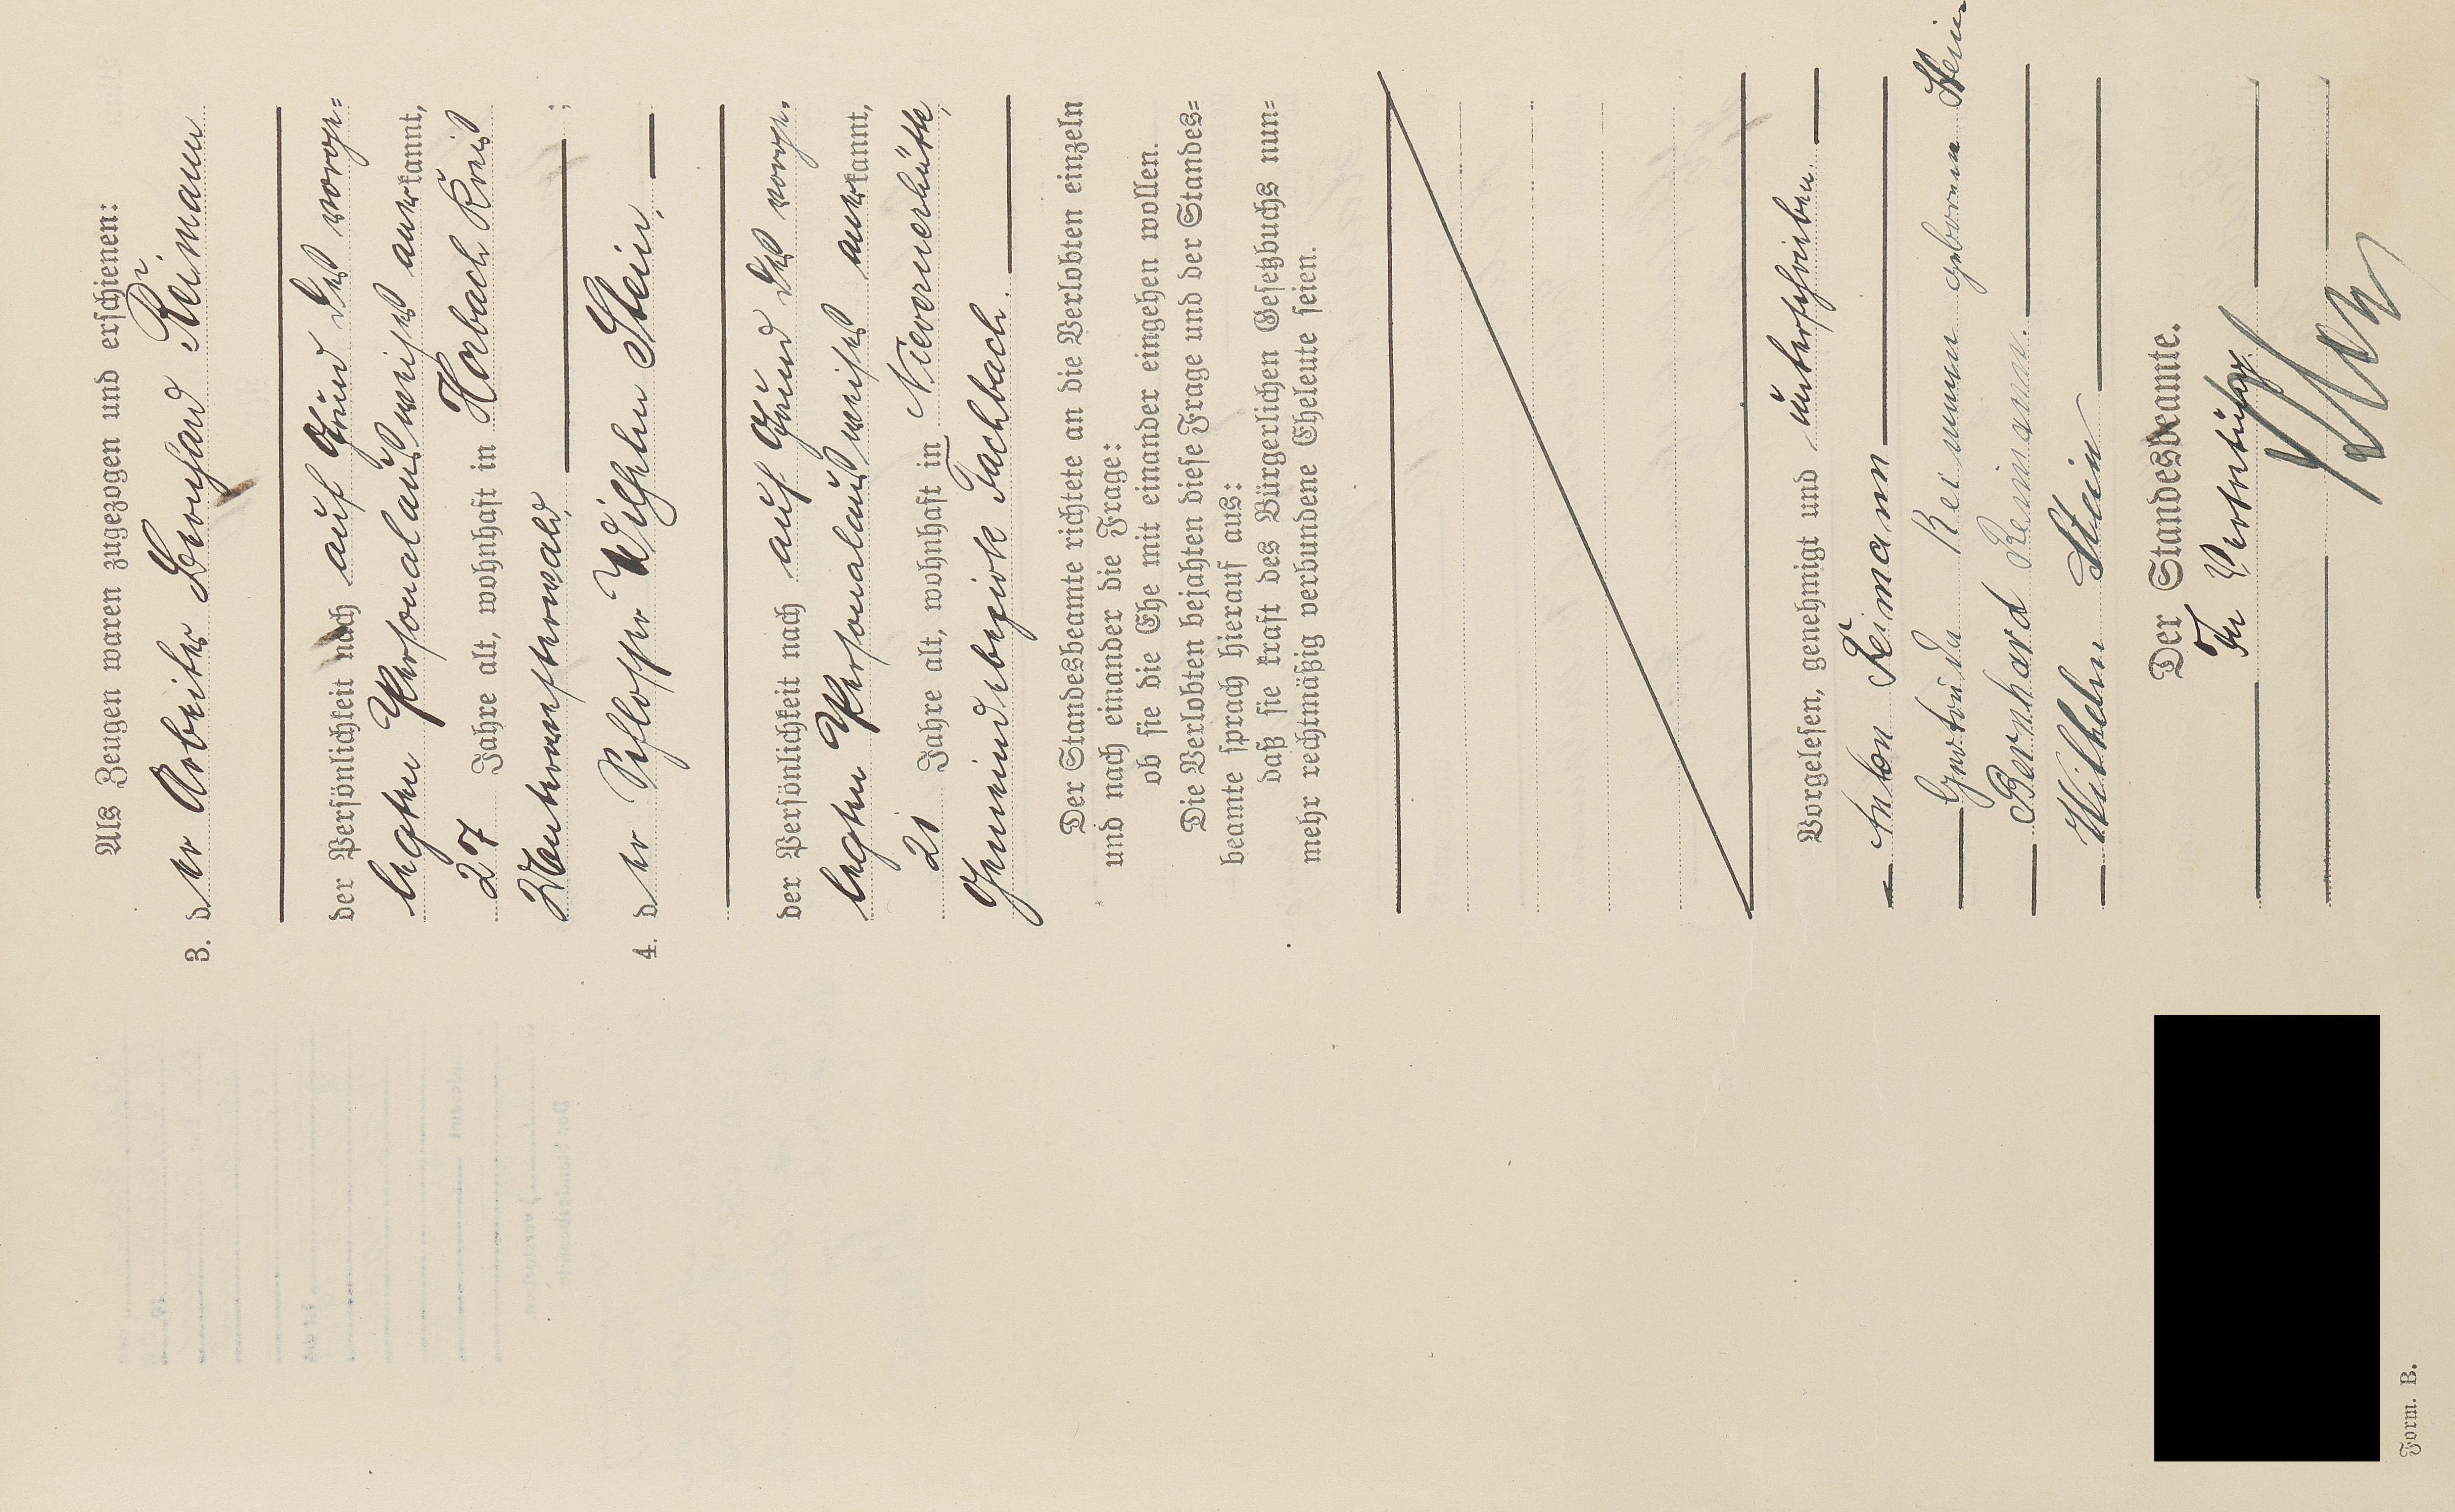 Als Zeugen waren zugezogen und erschienen:
3. der Arbeiter Bernhard Reimann
der Persönlichkeit nach auf Grund des vorge=
legten Personalausweises anerkannt,
27 Jahre alt, wohnhaft in Horbach Kreis
Unterwesterwald
4. der Schlosser Wilhelm Stein,
der Persönlichkeit nach auf Grund des vorge=
legten Personalausweises anerkannt,
21 Jahre alt, wohnhaft in Nievernerhütte,
Gemeindebezirk Fachbach.
Der Standesbeamte richtete an die Verlobten einzeln
und nach einander die Frage:
ob sie die Ehe mit einander eingehen wollen.
Die Verlobten bejahten diese Frage und der Standes=
beamte sprach hierauf aus:
daß sie kraft des Bürgerlichen Gesetzbuchs nun=
mehr rechtmäßig verbundene Eheleute seien.
Vorgelesen, genehmigt und unterschrieben
Anton Reimann
Gertruda Reimann geborene Stein
Bernhard Reimann.
Wilhelm Stein
Der Standesbeamte.
In Vertretung
Form. B.